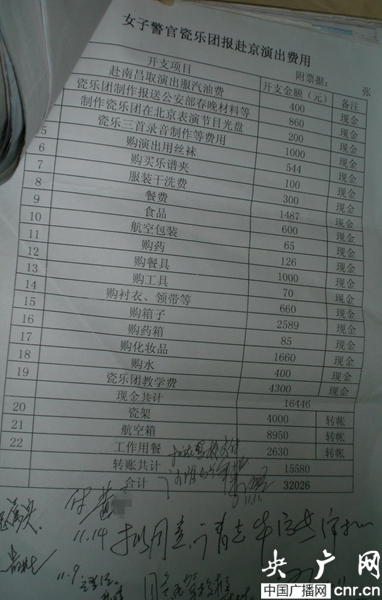 女子警官瓷乐团报赴京演出费用
附票据： 张
开支项目 开支金额（元） 备注
赴南昌取演出服汽油费 400 现金
瓷乐团制作报送公安部春晚材料等 860 现金
制作瓷乐团在北京表演节目光盘 200 现金
瓷乐三首录音制作等费用 1000 现金
5 购演出用丝袜 544 现金
6 购买乐谱夹 100 现金
7 服装干洗费 300 现金
8 餐费 1487 现金
9 食品 600 现金
10 航空包装 65 现金
11 购药 126 现金
12 购餐具 1000 现金
13 购工具 70 现金
14 购衬衣、领带等 660 现金
15 购箱子 2589 现金
16 购药箱 85 现金
17 购化妆品 1660 现金
18 购水 400 现金
19 瓷乐团教学费 4300 现金
现金共计 16446
20 瓷架 4000 转帐
21 航空箱 8950 转帐
22 工作用餐 2630 转帐
转账共计 15580
合计 32026
11.14
11.9
央广网
中国广播网 cnr.cn